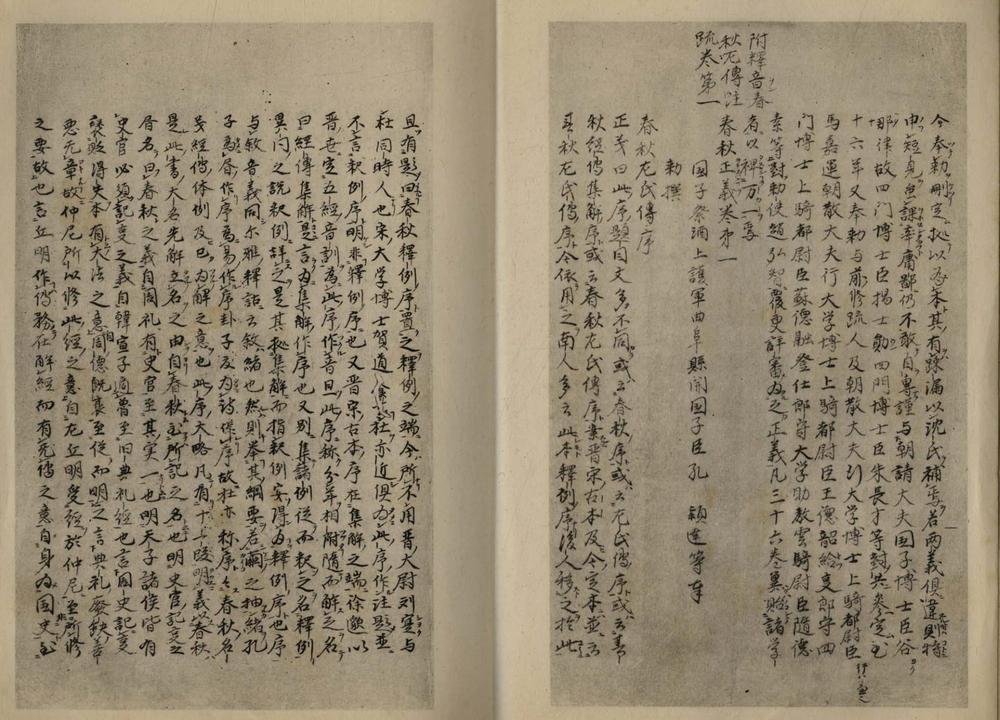 今奉勅刪定據以為本其有踈漏以沈氏補焉若兩義俱違則特
申短見雖課率庸鄙仍不敢自專謹与朝請大夫国子博士臣谷
那律故四门博士臣楊士勛四門博士臣朱長才等對共叅定至
十六年又奉勅与前修疏人及朝散大夫行大学博士上騎都尉臣
馬嘉運朝散大夫行大学博士上騎都尉臣王德韶給事郎守四
門博士上騎都尉臣蘇德融登仕郎守大学助教雲騎尉臣隨德
素等對勅使趙弘智覆更詳審為之正義凡三十六卷冀貽諸学
者以裨万一焉
春秋正義卷第一
国子祭酒上護軍曲阜縣開国子臣孔穎達等奉
勅撰
春秋左氏傳序
正義曰此序題目文多不同或云春秋序或云左氏傳序或云春
秋經傳集解序或云春秋左氏傳序案晋宋古本及今定本並云
春秋左氏傳序今依用之南人多云此本釋例序後人移之於此
附釋音春
秋左傳注
疏卷第一
且有題曰春秋釋例序置之釋例之端今所不用晋大尉刘寔与
杜同時人也宋大学博士賀道養去杜亦近俱為此序作注題並
不言釈例序明非釋例序也又晋宋古本序在集解之端徐邈以
晋世定五經音訓為此序作音且此序称分年相附隨而解之名
曰經傳集解是言為集解作序也又別集諸例從而釈之名釋例
異同之説釈例詳之是其據集解而指釈例安得為釋例序也序
与敘音義同尓雅釋詁云敘緒也然則举其綱要若繭之抽緒孔
子為昜作序卦子夏為詩作序故杜亦称序々春秋名
義經傳体例及已為解之意也此序大略凡有十一段明義春秋
是此書大名先解立名之由自春秋至所記之名也明史官記事之
書名曰春秋之義自周礼有史官至其実一也明天子諸侯皆有
史官必須記事之義自韓宣子適魯至旧典礼經也言周史記事
襃貶得失本有大法之意自周德既衰至從而明之言典礼廢缺善
悪无章故仲尼所以修此經之意自左丘明受經於仲尼至所修
之要故也言丘明作傳務在解經而有无傳之意自身為国史至